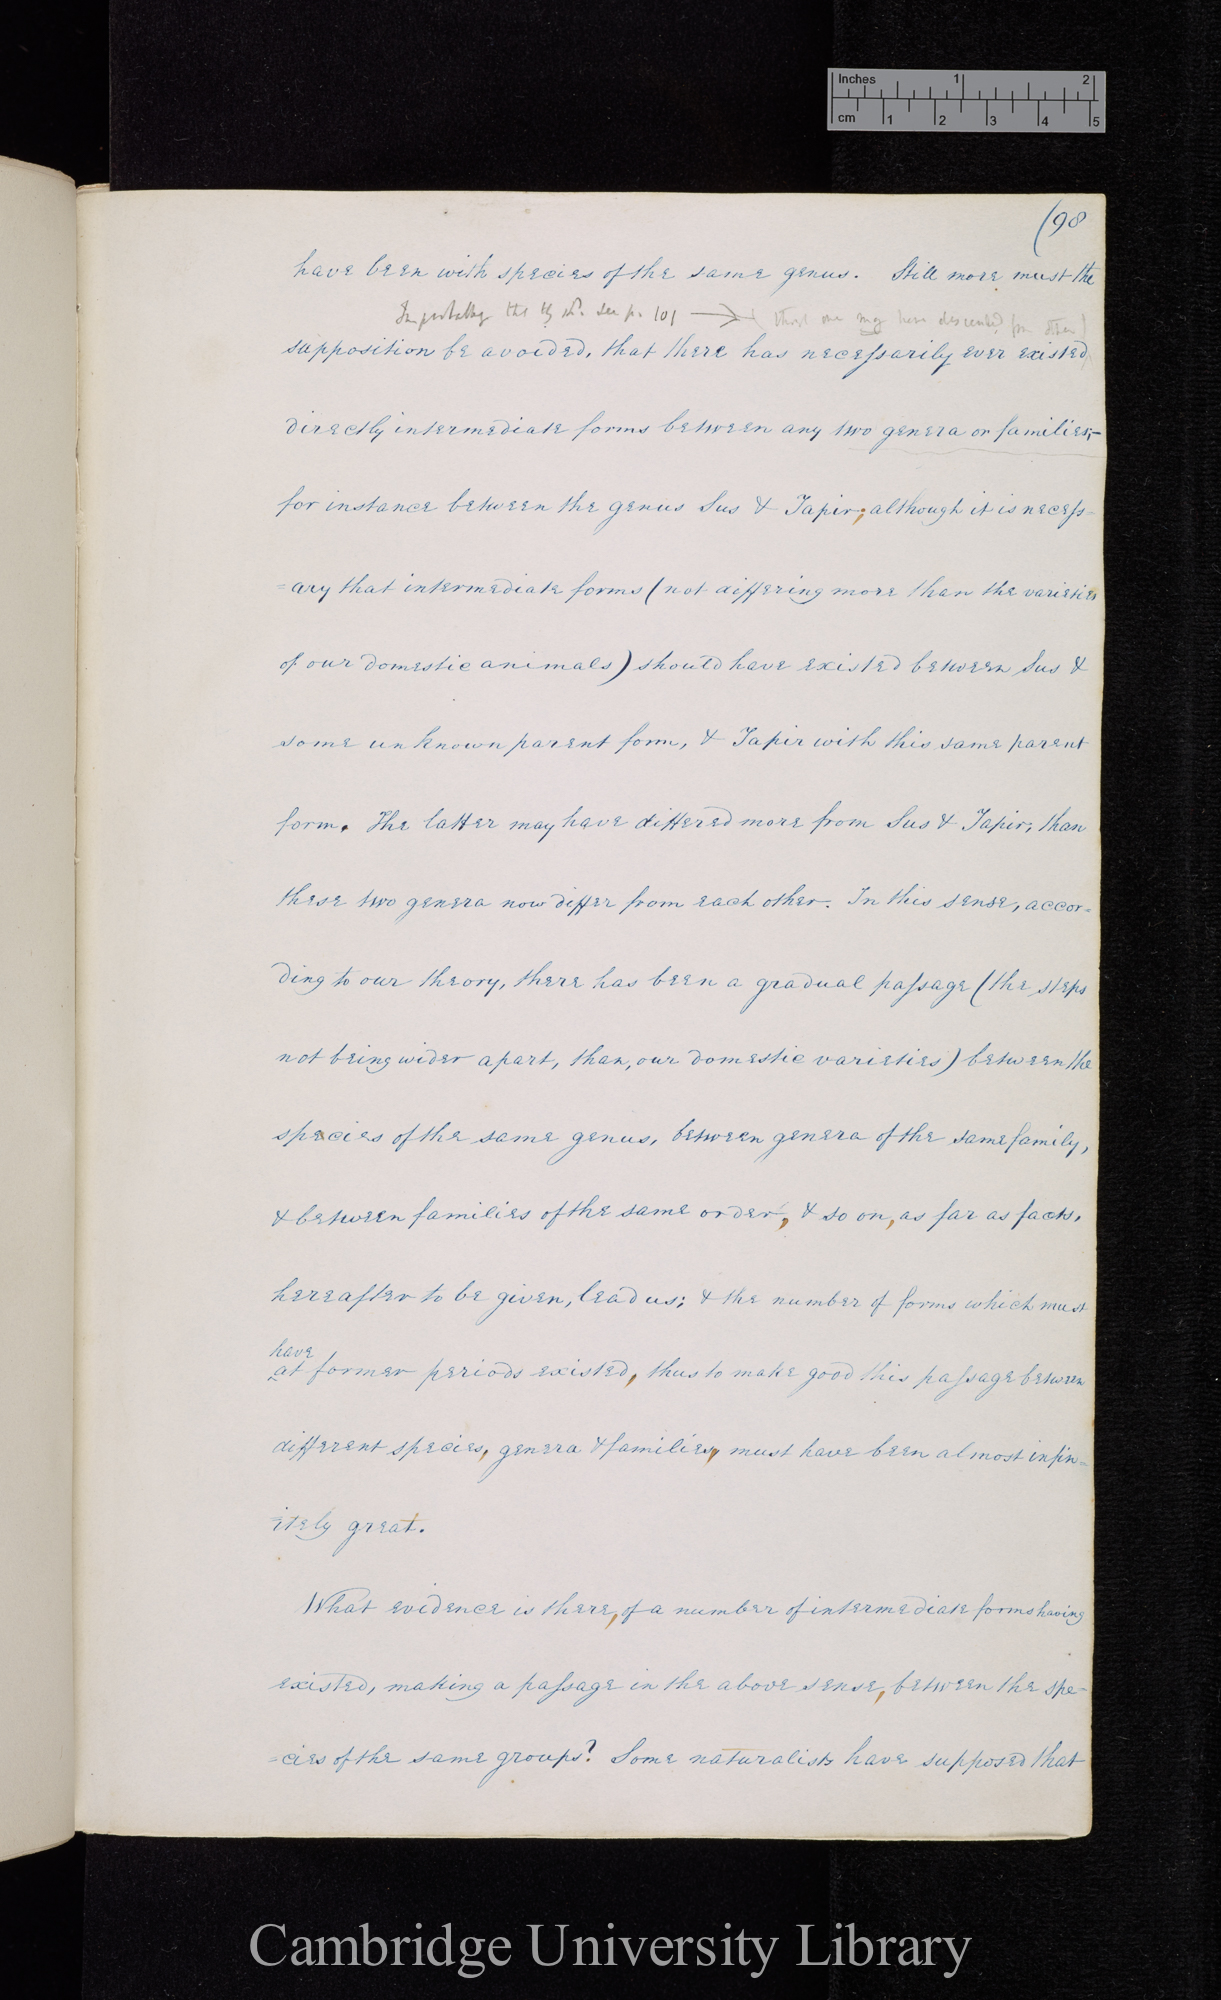 Inches 1 2
cm 1 2 3 4 5
(98
have been with species of the same genus. Still more must the
see p. 101 (though one may have descended from other)
supposition be avoided, that there has necessarily ever existed
directly intermediate forms between any two genera or families;–
for instance between the genus Sus & Tapir; although it is necess-
=ary that intermediate forms (not differing more than the varieties
of our domestic animals) should have existed between Sus &
some unknown parent form, & Tapir with this same parent
form. The latter may have differed more from Sus & Tapir, than
these two genera now differ from each other. In this sense, accor=
ding to our theory, there has been a gradual passage (the steps
not being wider apart, than, our domestic varieties) between the
species of the same genus, between genera of the same family,
& between families of the same order, & so on, as far as facts,
hereafter to be given, lead us; & the number of forms which must
have
at former periods existed, thus to make good this passage between
different species, genera & families, must have been almost infin=
=itely great.
What evidence is there, of a number of intermediate forms having
existed, making a passage in the above sense, between the spe-
=cies of the same groups? Some naturalists have supposed that
Cambridge University Library